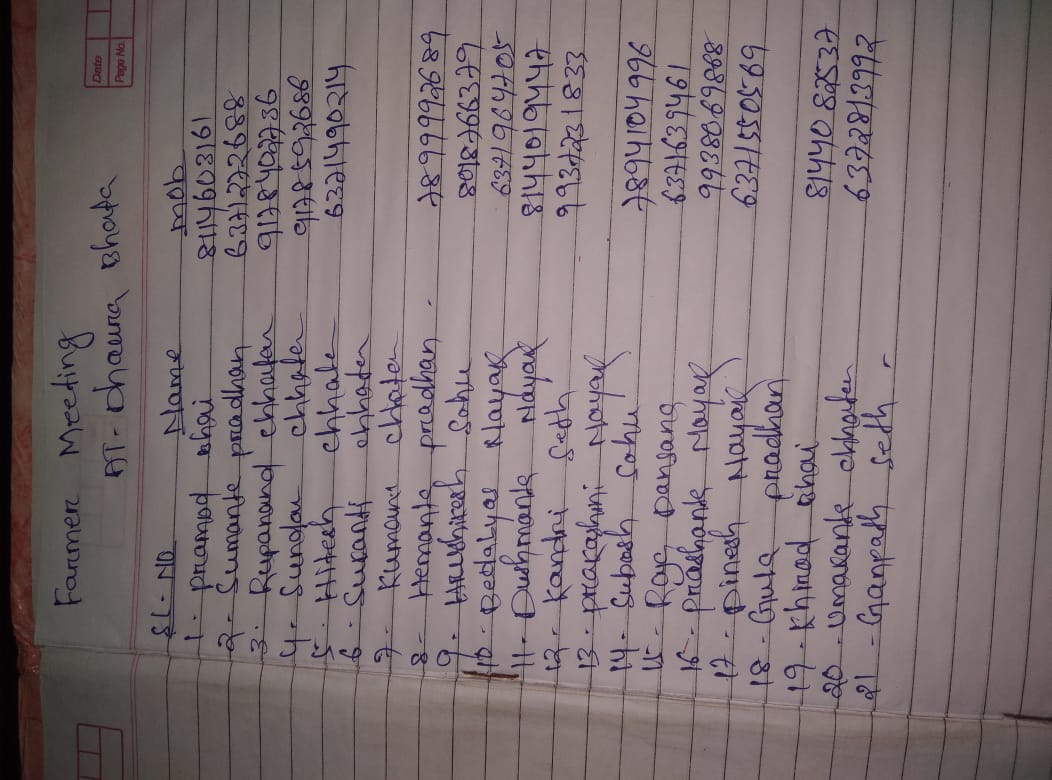 Date
Page No.
Farmer Meeting
AT- Dhaura Bhata
SL-NO Name mob
1- pramod bhai 8114603161
2- Sumante pradhan 6371272688
3- Rupanand chhater 9178402736
4- Sundar chhater 9178592686
5- Hitesh chhater 6371490214
6- Sukanti chhater
7- Kumani chhater
8- Hemante pradhan - 7899992689
9- Hrushikesh Sahu 8018766379
10- Bedabyas Nayak 6371964705
11- Dushmante Nayak 8144019447
12- Kandhi Seth 9937231833
13- prakashini Nayak
14- Subash Sahu 7894104996
15- Raj Dansana 6371639461
16- prashante Nayak 9938069888
17- Dinesh Nayak 6371550569
18- Gula pradhan
19- Khirod bhai 8144082537
20- Umakante chhater 6372813992
21- Ganpath Seth -